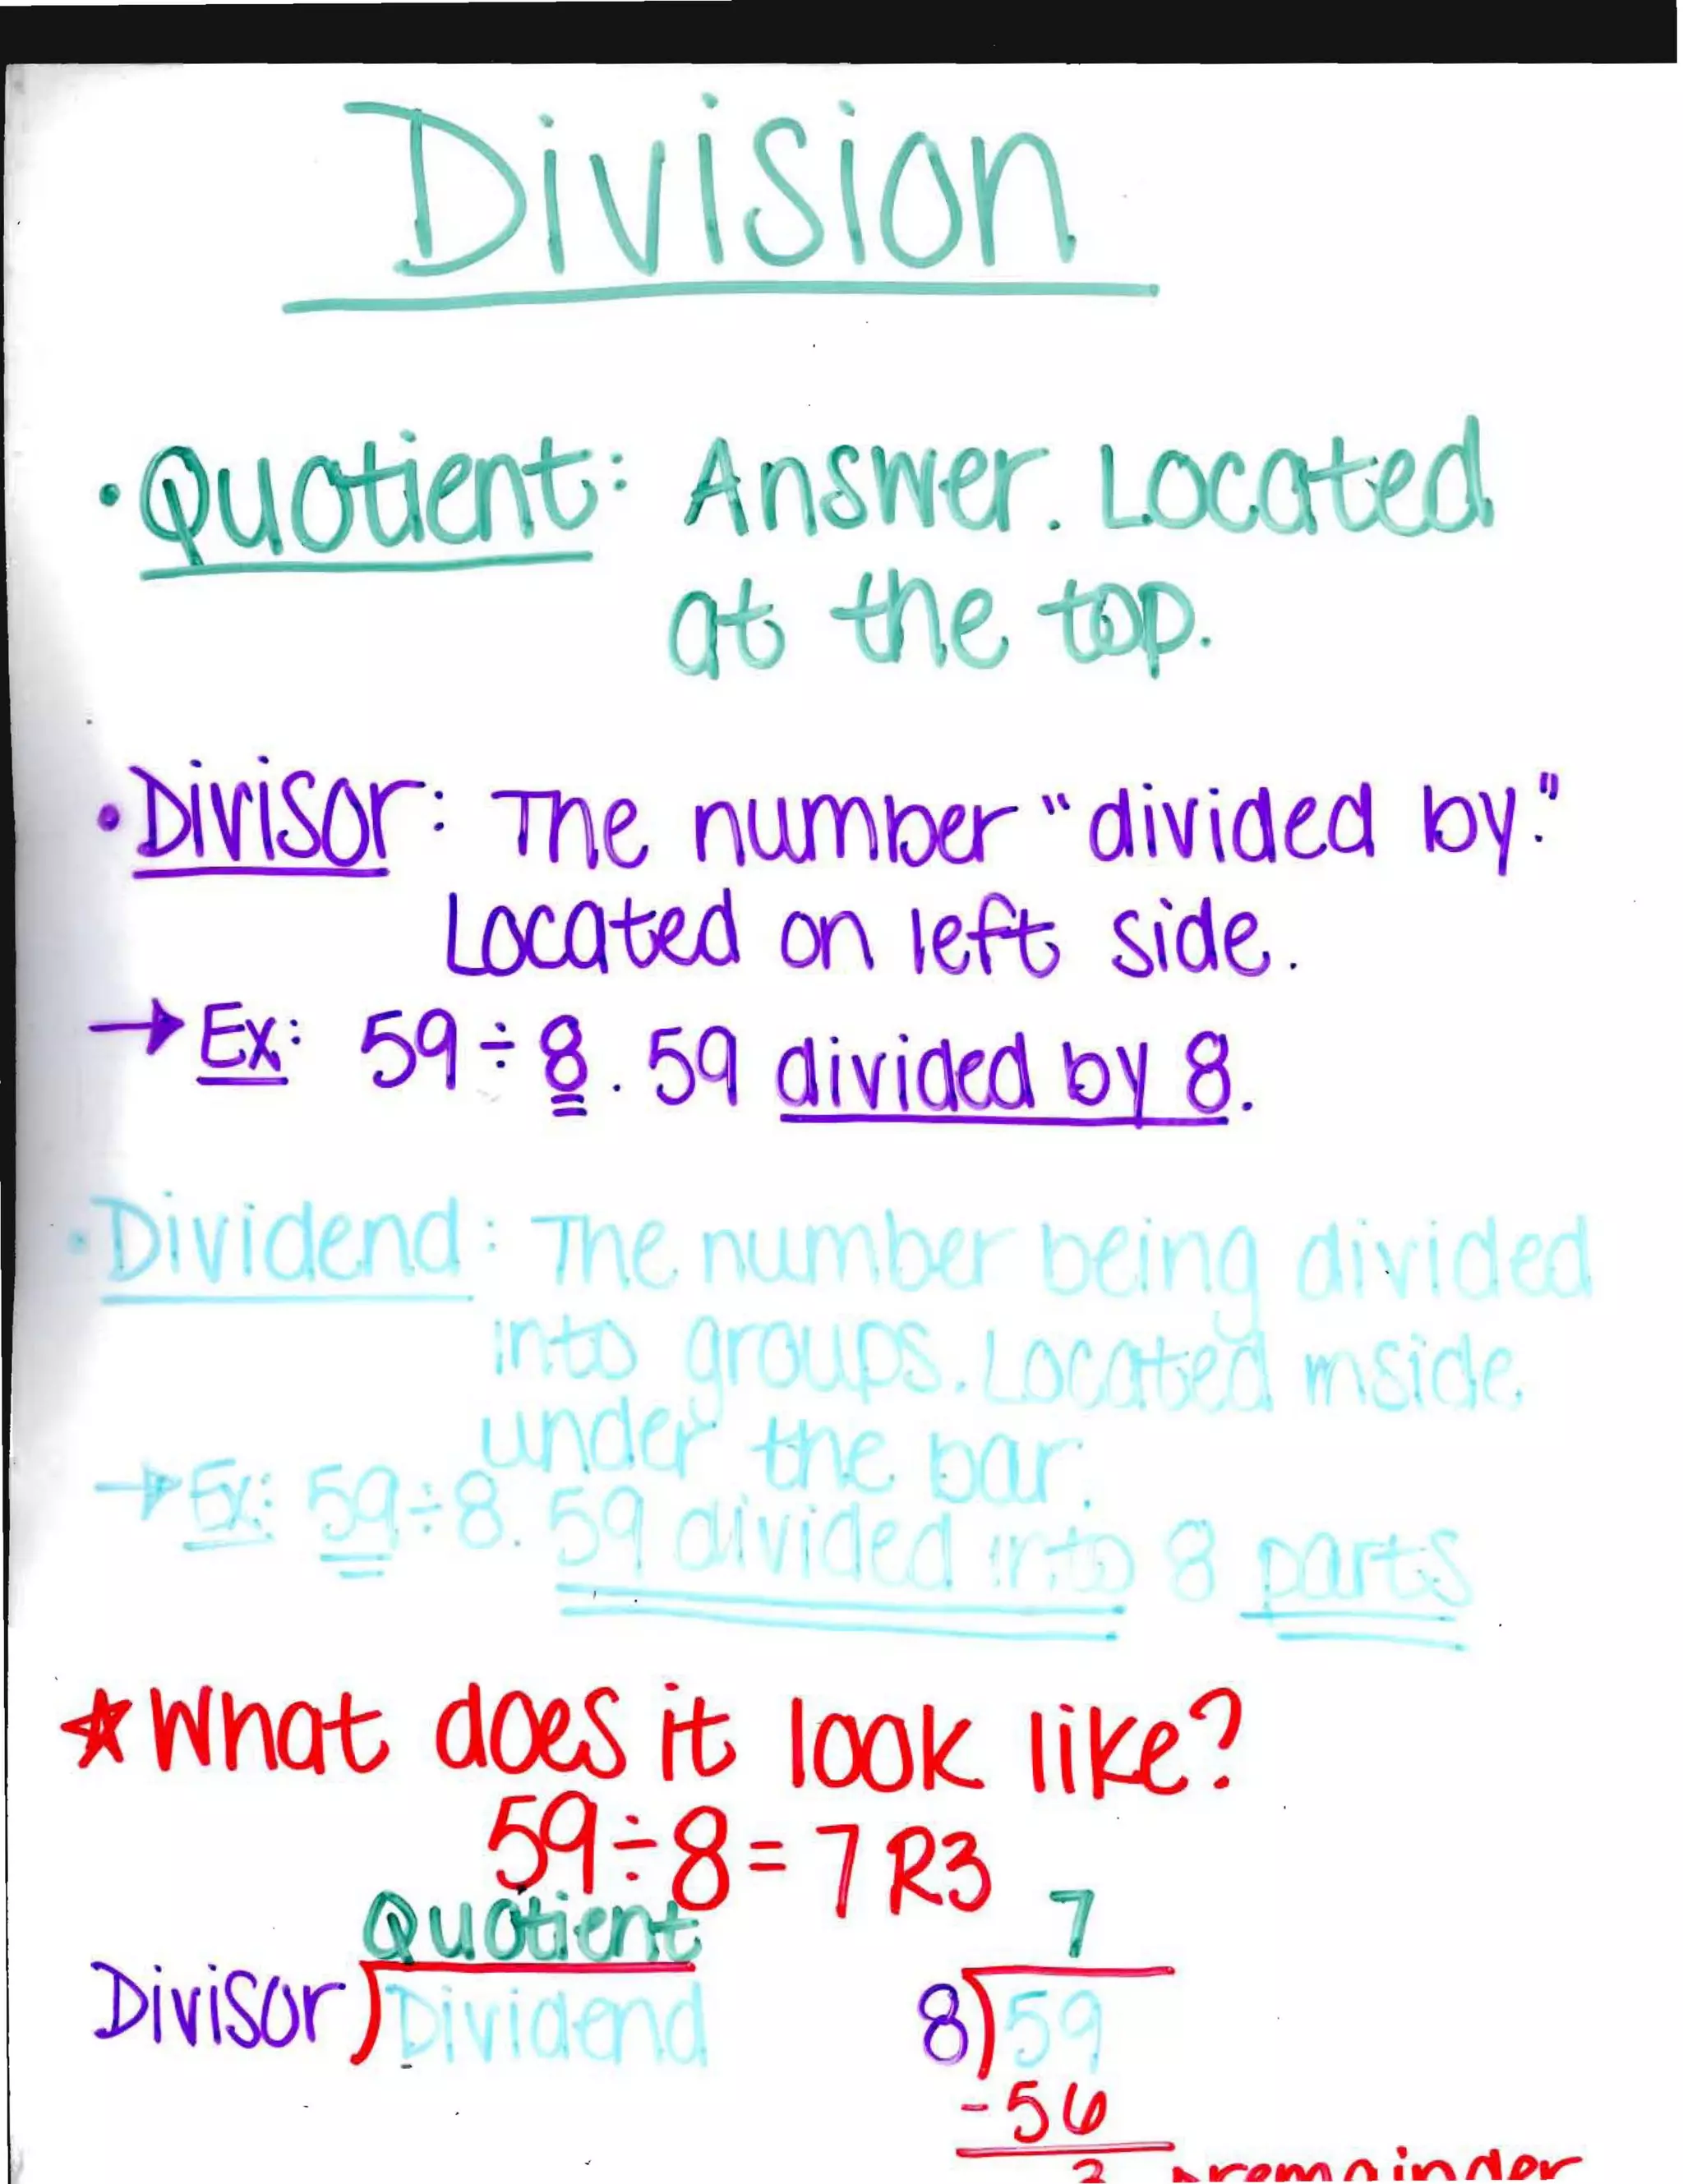 Division
• Quotient: Answer. Located
at the top.
• Divisor: The number "divided by."
Located on left side.
→ Ex: 59 ÷ 8. 59 divided by 8.
• Dividend: The number being divided
into groups. Located inside
under the bar.
→ Ex: 59 ÷ 8. 59 divided into 8 parts
☆ What does it look like?
59 ÷ 8 = 7 R3
Quotient
Divisor) Dividend
7
8)59
-56
3 → remainder